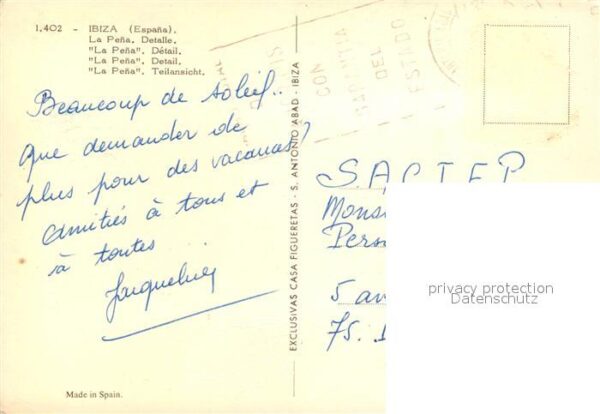 1.402 - IBIZA (España).
La Peña. Detalle.
"La Peña". Détail.
"La Peña". Detail.
"La Peña". Teilansicht.
Beaucoup de soleil..
Que demander de
plus pour des vacances?
Amitiés à tous et
à toutes
Jacqueline
Made in Spain.
EXCLUSIVAS CASA FIGUERETAS - S. ANTONIO ABAD - IBIZA
CON
GARANTIA
DEL
ESTADO
S.A.C.T.E.P
Mons
Pers
5 av
75.
privacy protection
Datenschutz